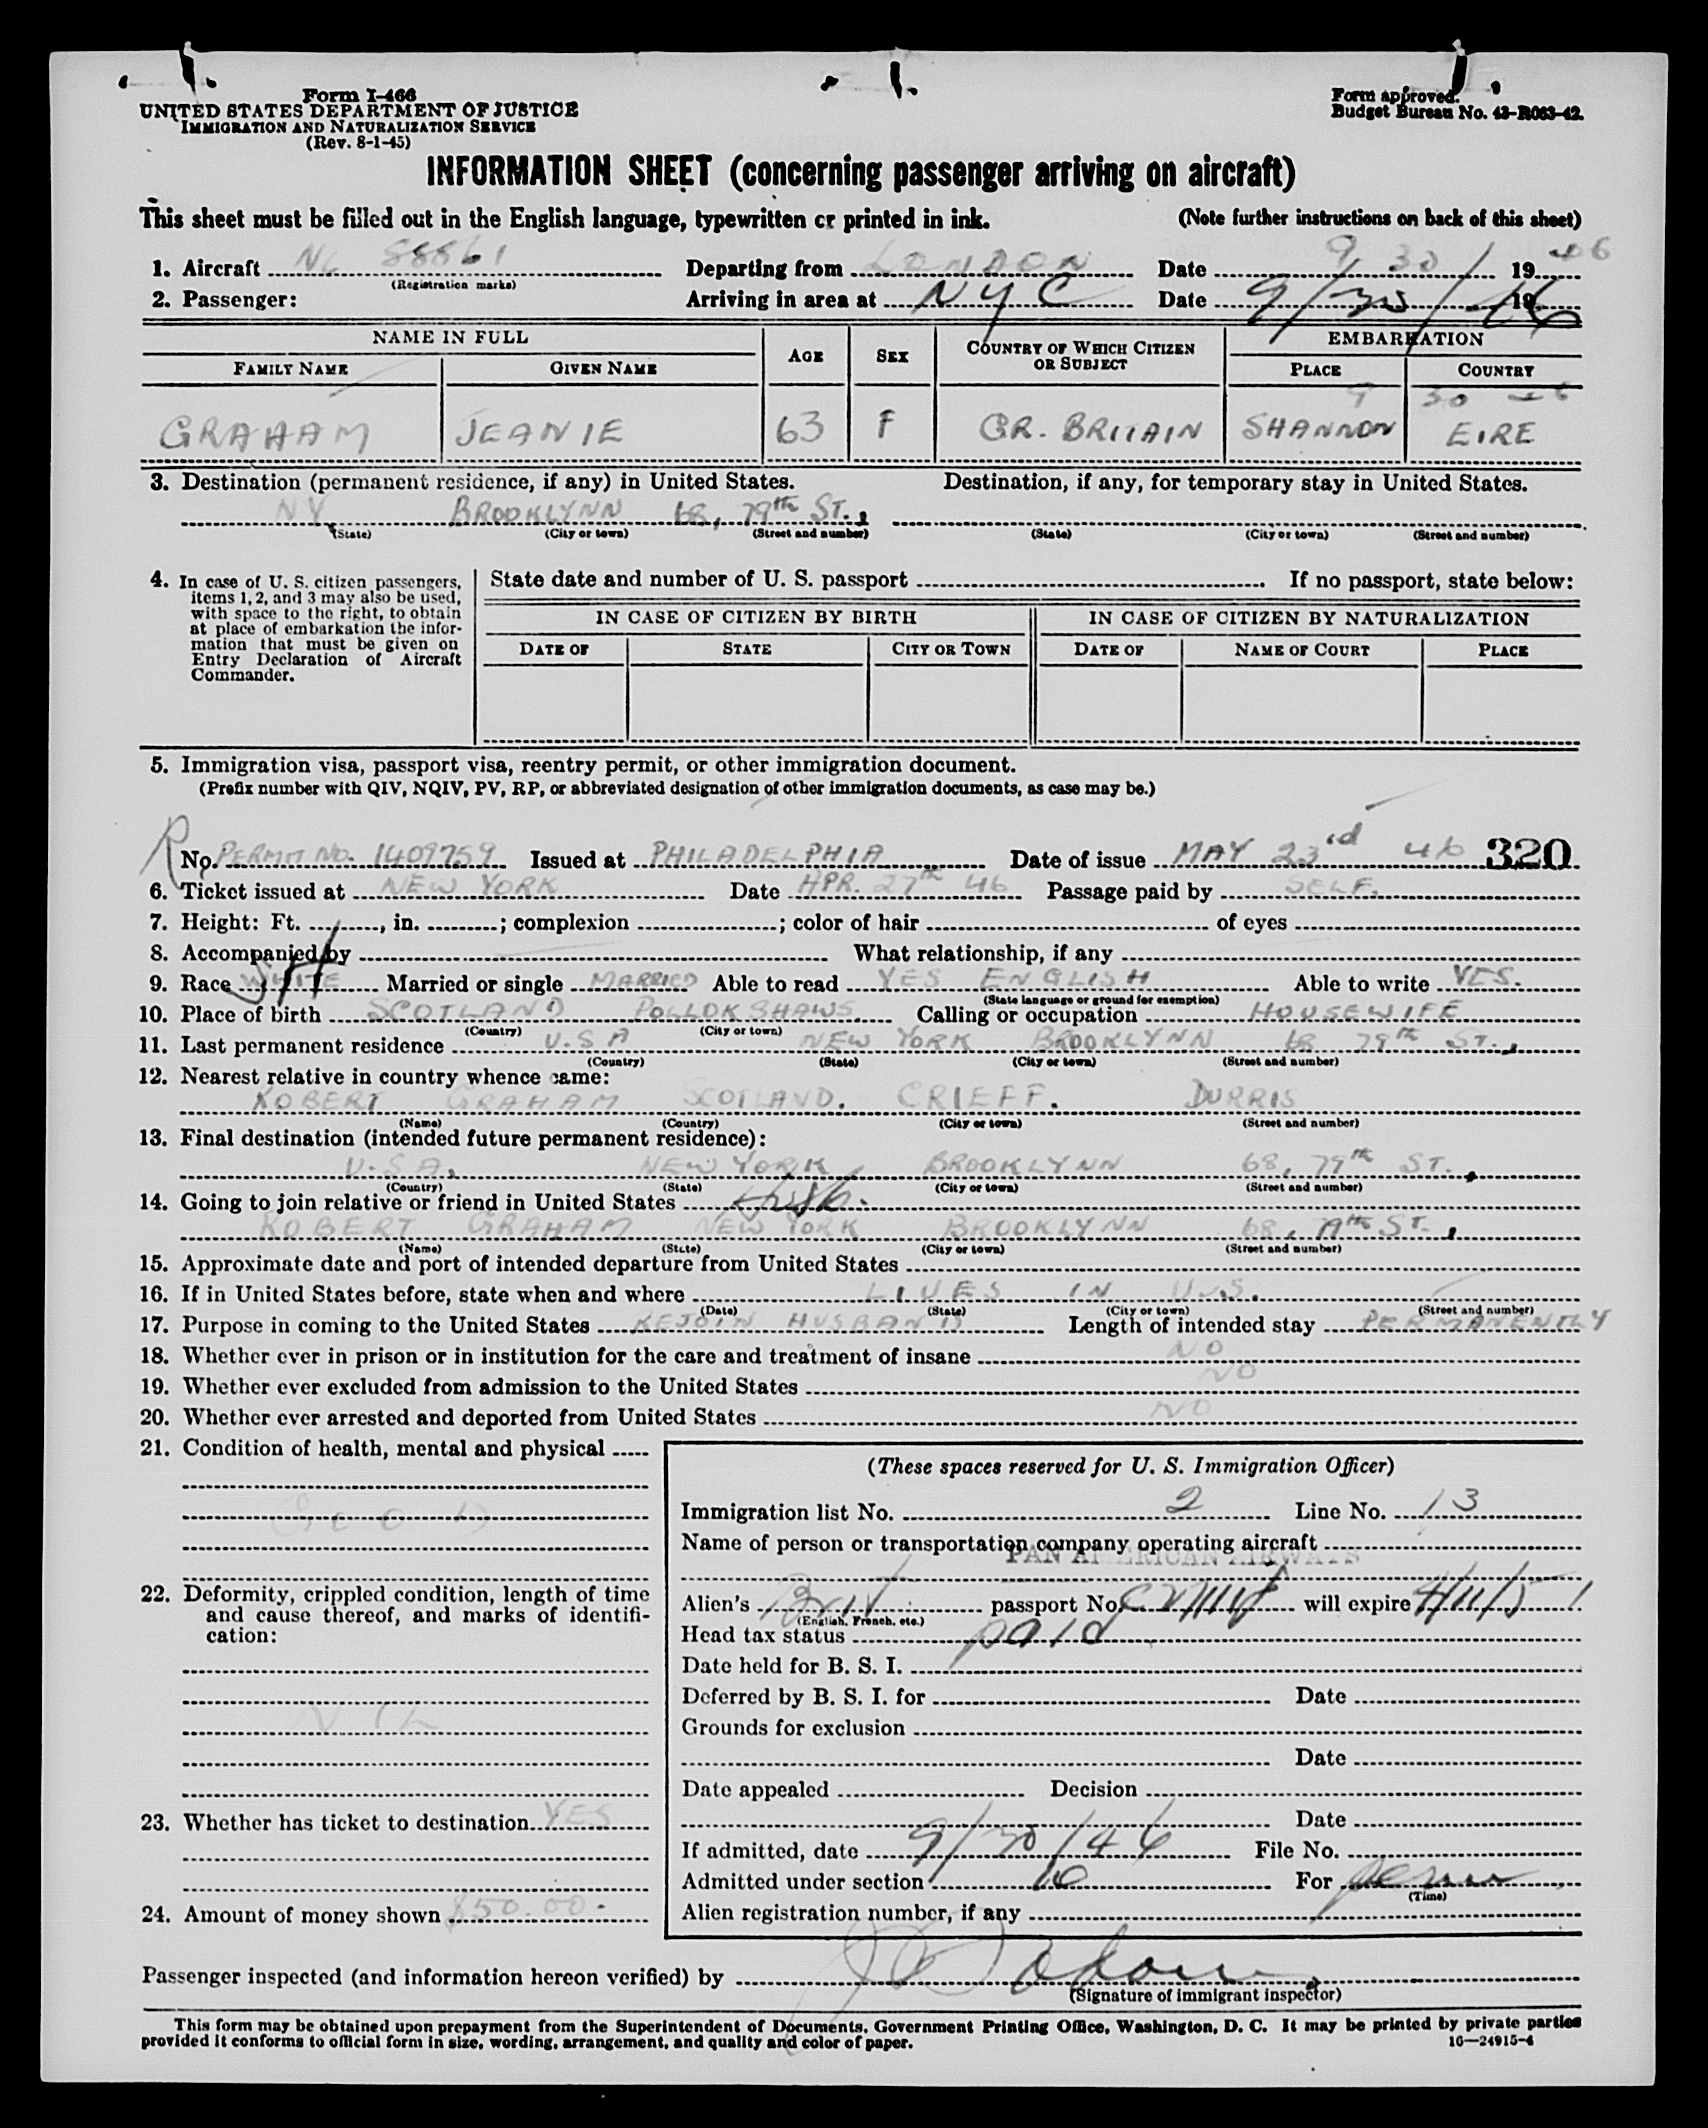 Form I-466
UNITED STATES DEPARTMENT OF JUSTICE
IMMIGRATION AND NATURALIZATION SERVICE
(Rev. 8-1-45)
Form approved.
Budget Bureau No. 43-R063-42.
INFORMATION SHEET (concerning passenger arriving on aircraft)
This sheet must be filled out in the English language, typewritten or printed in ink. (Note further instructions on back of this sheet)
1. Aircraft NC 88861 Departing from LONDON Date 9/30/ 1946
(Registration marks)
2. Passenger: Arriving in area at NYC Date 9/30/46 19
NAME IN FULL AGE SEX COUNTRY OF WHICH CITIZEN OR SUBJECT EMBARKATION
FAMILY NAME GIVEN NAME PLACE COUNTRY
9 30 46
GRAHAM JEANIE 63 F GR. BRITAIN SHANNON EIRE
3. Destination (permanent residence, if any) in United States. Destination, if any, for temporary stay in United States.
NY BROOKLYNN 68, 79th ST.,
(State) (City or town) (Street and number) (State) (City or town) (Street and number)
4. In case of U. S. citizen passengers, items 1, 2, and 3 may also be used, with space to the right, to obtain at place of embarkation the information that must be given on Entry Declaration of Aircraft Commander.
State date and number of U. S. passport . If no passport, state below:
IN CASE OF CITIZEN BY BIRTH IN CASE OF CITIZEN BY NATURALIZATION
DATE OF STATE CITY OR TOWN DATE OF NAME OF COURT PLACE
5. Immigration visa, passport visa, reentry permit, or other immigration document.
(Prefix number with QIV, NQIV, PV, RP, or abbreviated designation of other immigration documents, as case may be.)
No. PERMIT NO. 1409759 Issued at PHILADELPHIA Date of issue MAY 23rd 46 320
6. Ticket issued at NEW YORK Date APR. 27th 46 Passage paid by SELF.
7. Height: Ft. , in. ; complexion ; color of hair of eyes
8. Accompanied by What relationship, if any
9. Race WHITE Married or single MARRIED Able to read YES ENGLISH Able to write YES.
(State language or ground for exemption)
10. Place of birth SCOTLAND POLLOKSHAWS. Calling or occupation HOUSEWIFE
(Country) (City or town)
11. Last permanent residence U.S A NEW YORK BROOKLYNN 68 79th ST.,
(Country) (State) (City or town) (Street and number)
12. Nearest relative in country whence came:
ROBERT GRAHAM SCOTLAND. CRIEFF. DURRIS
(Name) (Country) (City or town) (Street and number)
13. Final destination (intended future permanent residence):
U.S.A. NEW YORK BROOKLYNN 68, 79th ST.,
(Country) (State) (City or town) (Street and number)
14. Going to join relative or friend in United States
ROBERT GRAHAM NEW YORK BROOKLYNN 68, 79th ST.,
(Name) (State) (City or town) (Street and number)
15. Approximate date and port of intended departure from United States
16. If in United States before, state when and where LIVES IN U.S.
(Date) (State) (City or town) (Street and number)
17. Purpose in coming to the United States REJOIN HUSBAND Length of intended stay PERMANENTLY
18. Whether ever in prison or in institution for the care and treatment of insane NO
19. Whether ever excluded from admission to the United States NO
20. Whether ever arrested and deported from United States NO
21. Condition of health, mental and physical
GOOD
22. Deformity, crippled condition, length of time and cause thereof, and marks of identification:
NIL
23. Whether has ticket to destination YES
24. Amount of money shown $50.00.
(These spaces reserved for U. S. Immigration Officer)
Immigration list No. 2 Line No. 13
Name of person or transportation company operating aircraft
PAN AMERICAN AIRWAYS
Alien's Brit passport No. will expire 4/11/51
(English, French, etc.)
Head tax status paid
Date held for B. S. I.
Deferred by B. S. I. for Date
Grounds for exclusion
Date
Date appealed Decision
Date
If admitted, date 9/30/46 File No.
Admitted under section For perm
(Time)
Alien registration number, if any
Passenger inspected (and information hereon verified) by
(Signature of immigrant inspector)
This form may be obtained upon prepayment from the Superintendent of Documents, Government Printing Office, Washington, D. C. It may be printed by private parties
provided it conforms to official form in size, wording, arrangement, and quality and color of paper. 16—24915-4